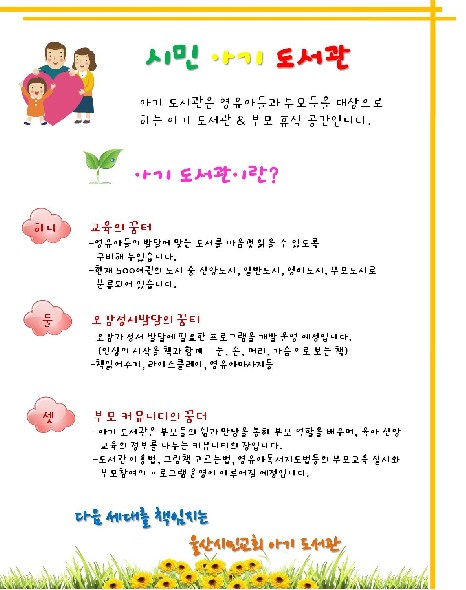 시민 아기 도서관
아기 도서관은 영유아들과 부모들을 대상으로
하는 아기 도서관 & 부모 휴식 공간입니다.
아기 도서관이란?
하나
교육의 꿈터
-영유아들의 발달에 맞는 도서를 마음껏 읽을 수 있도록
구비해 두었습니다.
-현재 500여권의 도서 중 신앙도서, 일반도서, 영어도서, 부모도서로
분류되어 있습니다.
둘
오감정서발달의 꿈터
오감과 정서 발달에 필요한 프로그램을 개발 운영 예정입니다.
(인생의 시작을 책과 함께 눈, 손, 머리, 가슴으로 보는 책)
-책읽어주기, 라이스클레이, 영유아마사지등
셋
부모 커뮤니티의 꿈터
아기 도서관은 부모들의 쉼과 만남을 통해 부모 역할을 배우며, 육아 신앙
교육의 정보를 나누는 커뮤니티의 장입니다.
-도서관 이용법, 그림책 고르는법, 영유아독서지도법등의 부모교육 실시와
부모참여의 프로그램 운영이 이루어질 예정입니다.
다음 세대를 책임지는
울산시민교회 아기 도서관